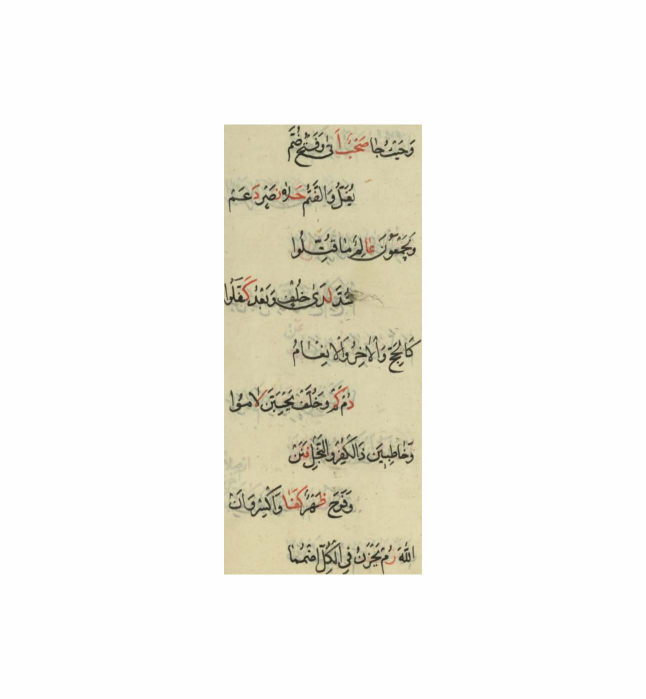 وَحَيْثُ جَا صُحْبَةٌ أَتَى وَفَتْحُ ضَمّ
يُغَلَّ وَالضَّمُّ حَلَا نَصْرٍ دَعَمْ
وَيَجْمَعُونَ عَالِمٌ مَا قُتِّلُوا
شُدَّ لَدَى خُلْفٍ وَبَعْدُ كَفَلُوا
كَالحَجِّ وَالْآخِرُ وَالْأَنْعَامُ
دُمْ كَمْ وَخُلْفُ يَحْسَبَنَّ لَامُوا
وَخَاطِبَنْ ذَا الكُفْرِ وَالبُخْلِ فَنَنْ
وَفَرَحٌ ظَهْرٌ كَفَا وَاكْسِرْ وَأَنْ
اللهَ رُمْ يَحْزُنْ فِي الكُلِّ اضْمُمَا